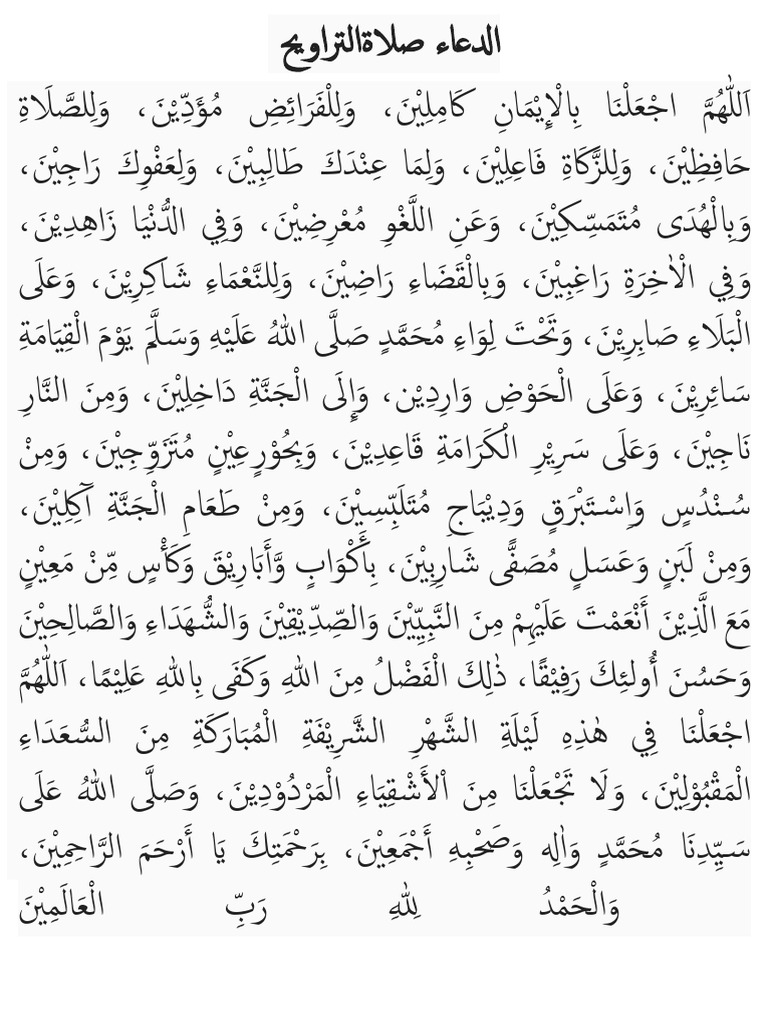 الدعاء صلاةالتراويح
اَللّٰهُمَّ اجْعَلْنَا بِالْإِيْمَانِ كَامِلِيْنَ، وَلِلْفَرَائِضِ مُؤَدِّيْنَ، وَلِلصَّلَاةِ
حَافِظِيْنَ، وَلِلزَّكَاةِ فَاعِلِيْنَ، وَلِمَا عِنْدَكَ طَالِبِيْنَ، وَلِعَفْوِكَ رَاجِيْنَ،
وَبِالْهُدَى مُتَمَسِّكِيْنَ، وَعَنِ اللَّغْوِ مُعْرِضِيْنَ، وَفِي الدُّنْيَا زَاهِدِيْنَ،
وَفِي الْاٰخِرَةِ رَاغِبِيْنَ، وَبِالْقَضَاءِ رَاضِيْنَ، وَلِلنَّعْمَاءِ شَاكِرِيْنَ، وَعَلَى
الْبَلَاءِ صَابِرِيْنَ، وَتَحْتَ لِوَاءِ مُحَمَّدٍ صَلَّى اللهُ عَلَيْهِ وَسَلَّمَ يَوْمَ الْقِيَامَةِ
سَائِرِيْنَ، وَعَلَى الْحَوْضِ وَارِدِيْن، وَإِلَى الْجَنَّةِ دَاخِلِيْنَ، وَمِنَ النَّارِ
نَاجِيْنَ، وَعَلَى سَرِيْرِ الْكَرَامَةِ قَاعِدِيْنَ، وَبِحُوْرٍعِيْنٍ مُتَزَوِّجِيْنَ، وَمِنْ
سُنْدُسٍ وَاِسْتَبْرَقٍ وَدِيْبَاجٍ مُتَلَبِّسِيْنَ، وَمِنْ طَعَامِ الْجَنَّةِ آكِلِيْنَ،
وَمِنْ لَبَنٍ وَعَسَلٍ مُصَفًّى شَارِبِيْنَ، بِأَكْوَابٍ وَّأَبَارِيْقَ وَكَأْسٍ مِّنْ مَعِيْنٍ
مَعَ الَّذِيْنَ أَنْعَمْتَ عَلَيْهِمْ مِنَ النَّبِيِّيْنَ وَالصِّدِّيْقِيْنَ وَالشُّهَدَاءِ وَالصَّالِحِيْنَ
وَحَسُنَ أُولئِكَ رَفِيْقًا، ذٰلِكَ الْفَضْلُ مِنَ اللهِ وَكَفَى بِاللهِ عَلِيْمًا، اَللّٰهُمَّ
اجْعَلْنَا فِي هٰذِهِ لَيْلَةِ الشَّهْرِ الشَّرِيْفَةِ الْمُبَارَكَةِ مِنَ السُّعَدَاءِ
الْمَقْبُوْلِيْنَ، وَلَا تَجْعَلْنَا مِنَ اْلأَشْقِيَاءِ الْمَرْدُوْدِيْنَ، وَصَلَّى اللهُ عَلَى
سَيِّدِنَا مُحَمَّدٍ وَاٰلِه وَصَحْبِهِ أَجْمَعِيْنَ، بِرَحْمَتِكَ يَا أَرْحَمَ الرَّاحِمِيْنَ،
وَالْحَمْدُ لِلهِ رَبِّ الْعَالَمِيْنَ